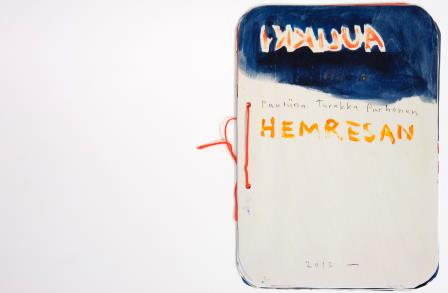 AULIKKI
Pauliina Turakka Purhonen
HEMRESAN
2013 —